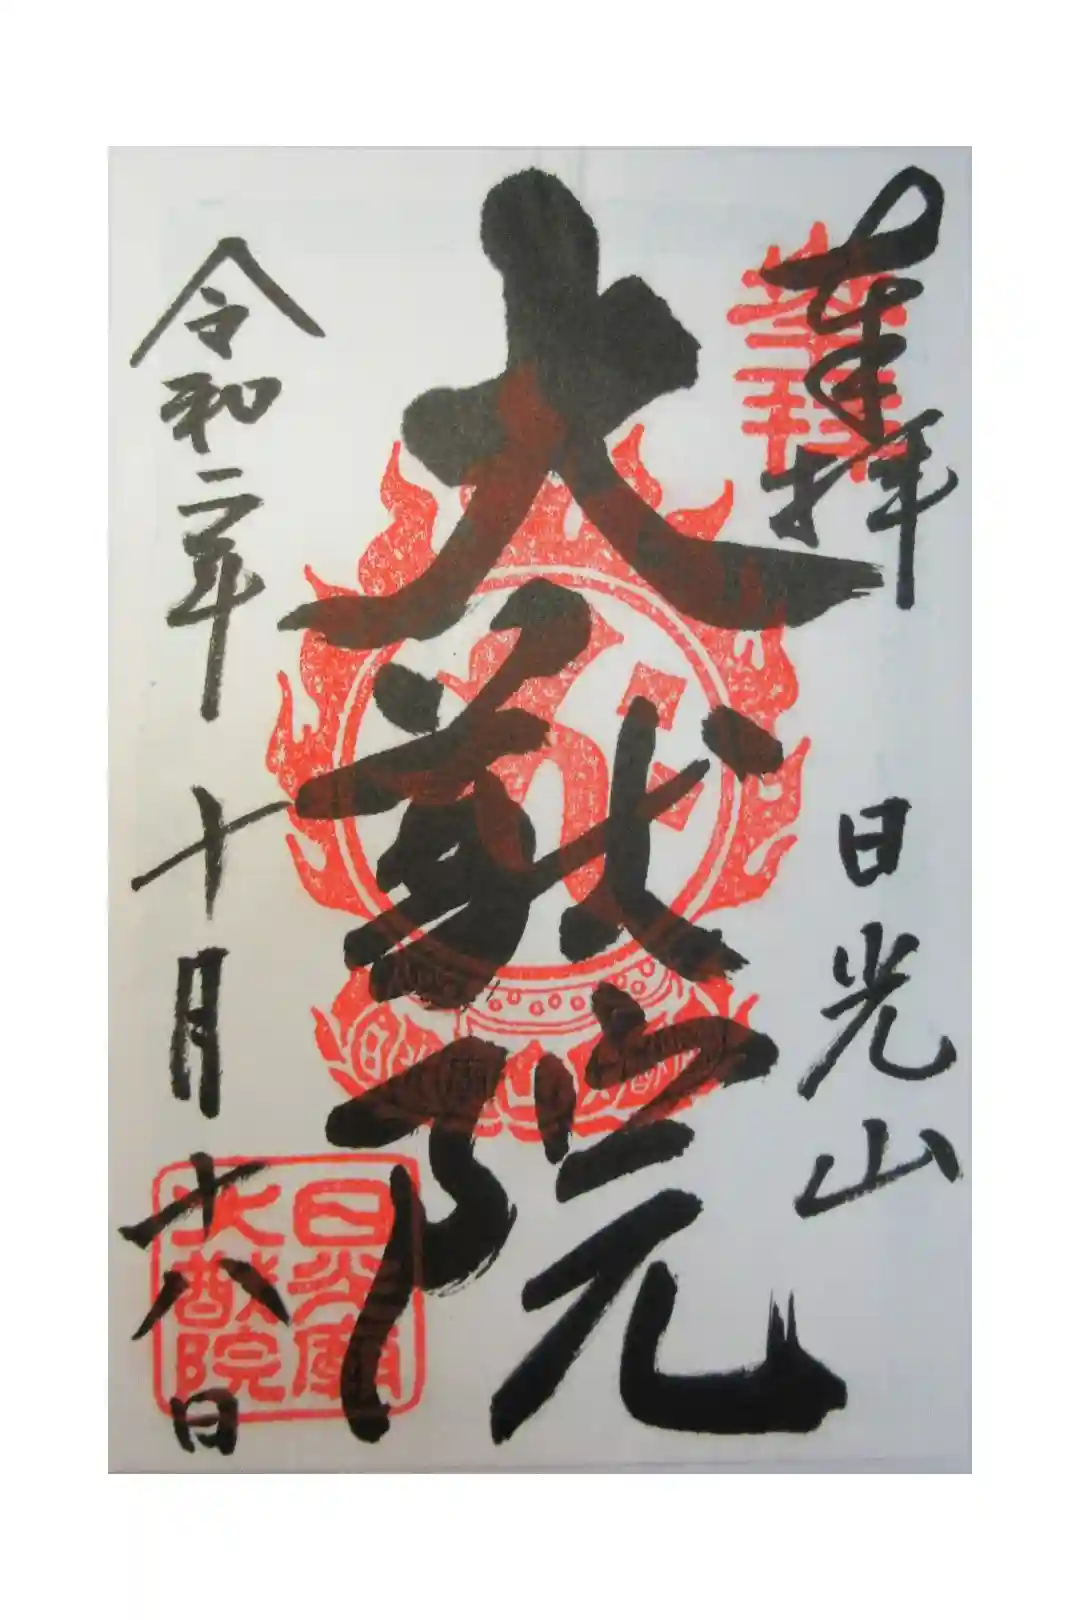 奉拝
日光山
大猷院
令和二年十月十六日
奉拝
日光廟
大猷院